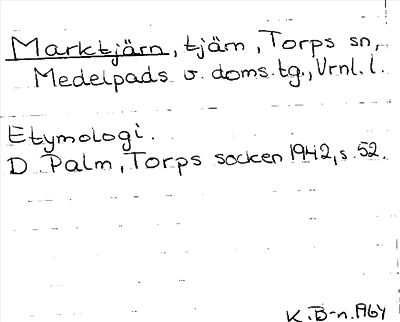 Marktjärn, tjärn, Torps sn,
Medelpads v. doms.tg., Vrnl. l.
Etymologi.
D Palm, Torps socken 1942, s. 52.
K. B-n. Aby